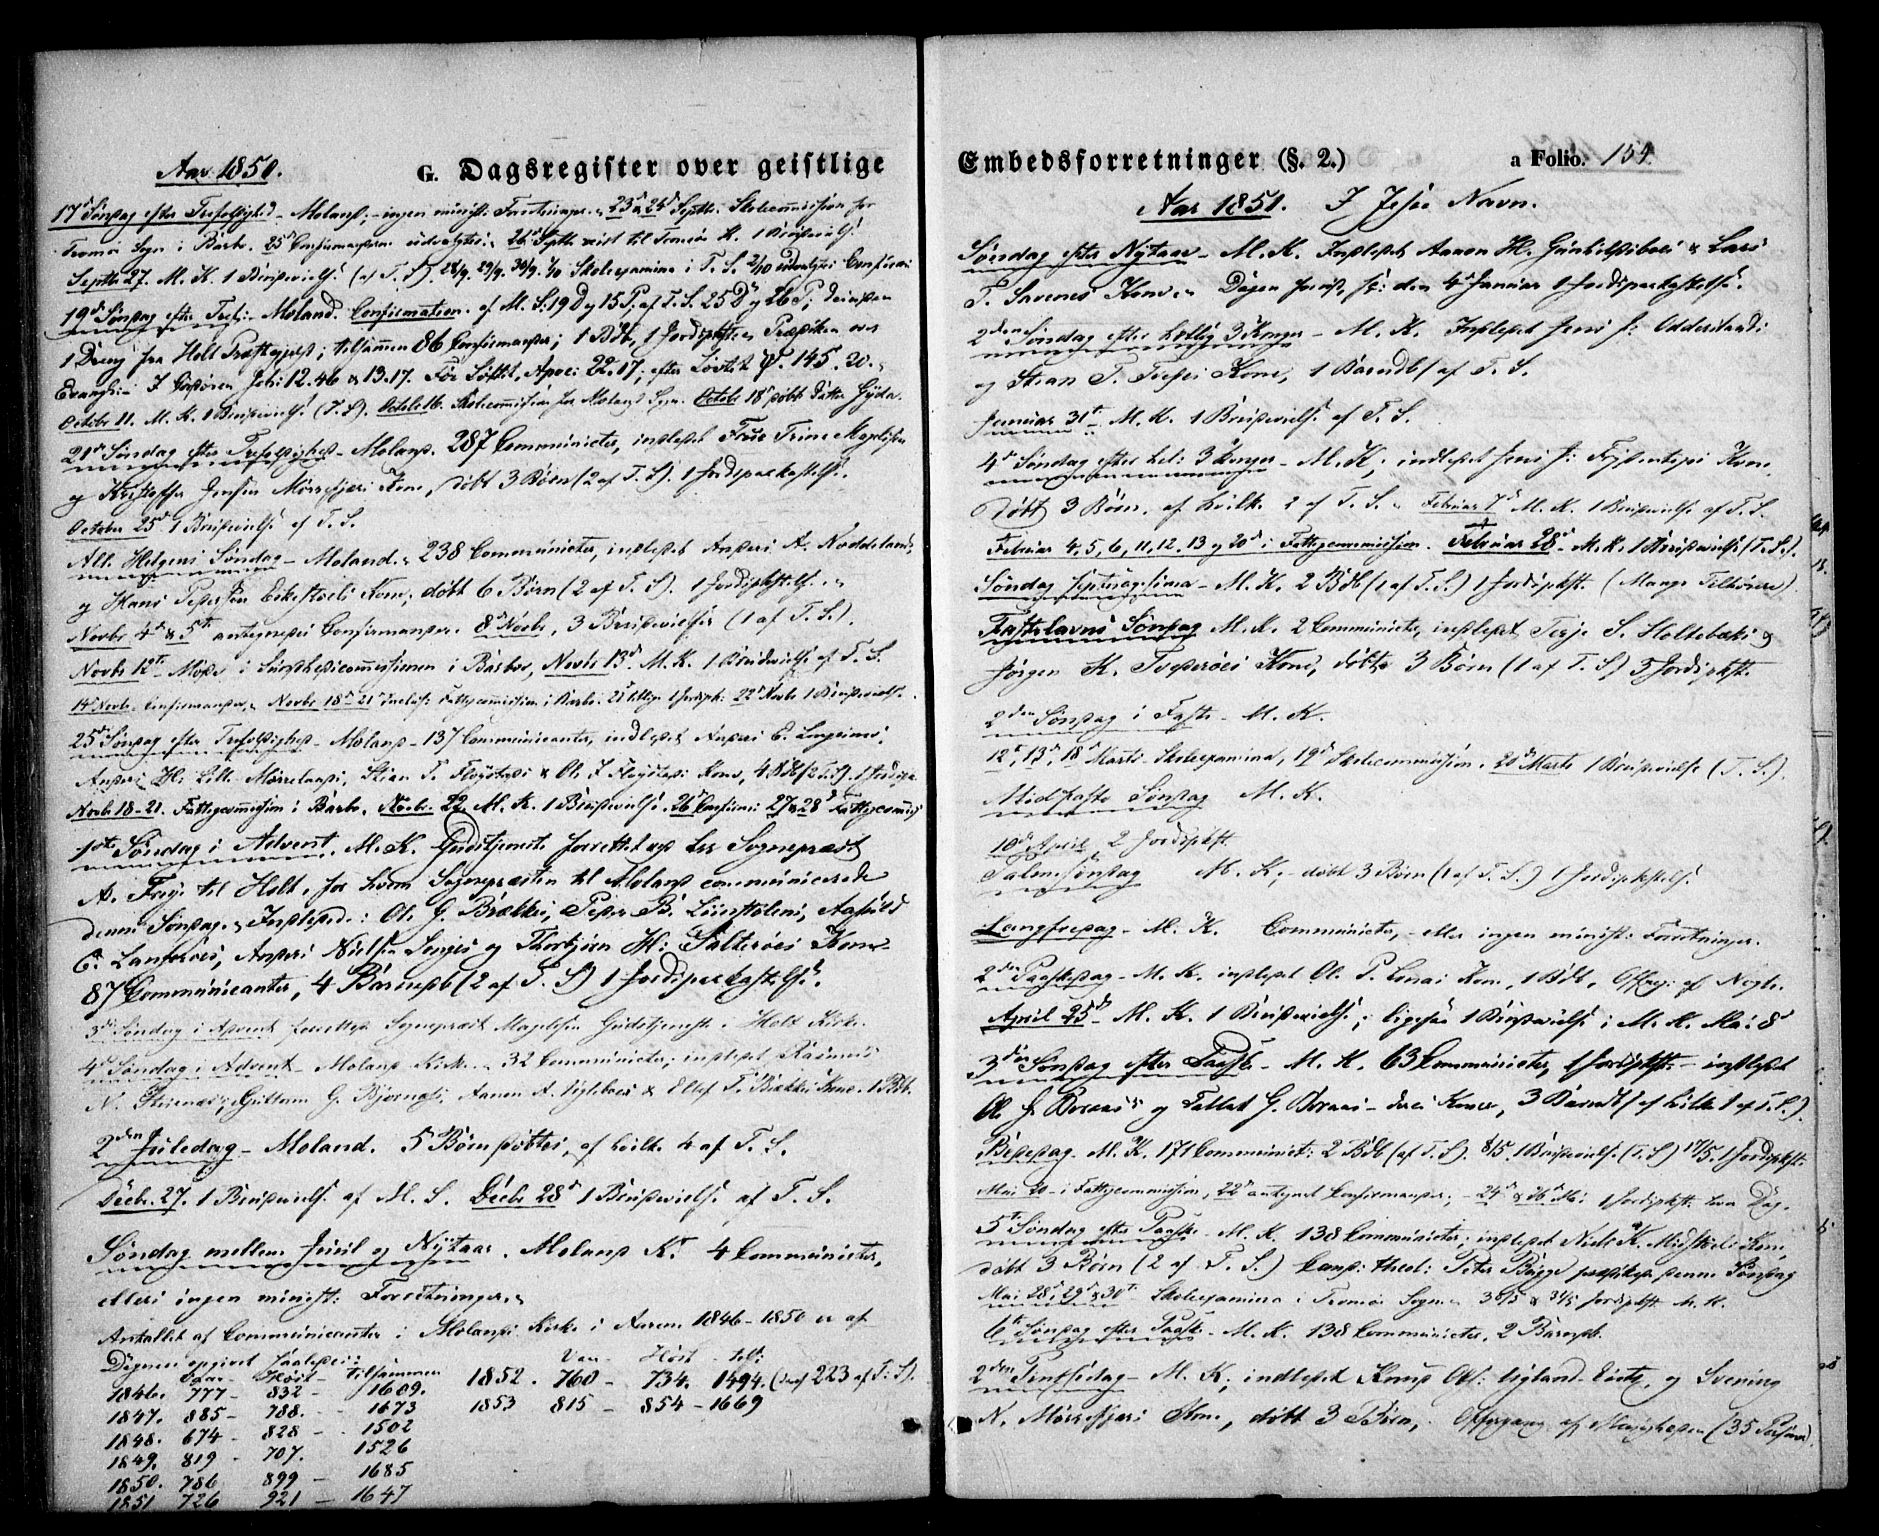 Aar 1850. G. Dagsregister over geistlige
17d Søndag efter Trefoldighed - Moland; - ingen minist: Forretninger. 23d & 24d Septbr. Skolecommission for
Tromø Sogn i Barbo. 25d Confirmanderne udvalgtes. 26d Septbr. til Tromø K. 1 Brudevielse
Septbr 27. M. K. 1 Brudevielse (af T. S.). 28/9. 29/9. 30/9. 1/10 Skoleexamina i T. S. 2/10
19de Søndag efter Tref: - Moland. Confirmation. af M. S. 19 D og 15 P. af T. S. 25 D og 26 P;
1 Dreng fra Holt Præstegjeld; tilsammen 86 Confirmander; 1 Bdb, 1 Jordpkst. Prædiken over
Evang: - Joh: 12.46 & 13.17. Før Løftet, Apoc: 22.17, efter Løftet ψ. 145. 20.
October 11. M. K. 1 Brudevielse (T. S.). Octobr 16. Skolecommission for Moland Sogn. Octobr 18d døbt Datter Gyda.
21de Søndag efter Trefoldighed - Moland. 287 Communicter, indledet Frue Trine Magelssen
og Kristoffer Jensen Mørrefjær Kone, døbt 3 Børn (2 af T. S.). 1 Jordspaakastelse.
October 25d 1 Brudevielse af T. S.
All. Helgens Søndag - Moland. 238 Communicter, indledet Anders A. Noddeland
og Hans Pedersen Kone; døbt 6 Børn (2 af T. S.). 1 Jordspkstelse.
Novbr 4d & 5te antegnedes Confirmander. 8d Novbr, 3 Brudevielser (1 af T. S.).
Novbr 12te Møde i Sundhedscommissionen i Barbo, Novbr 13d. M. K. 1 Brudevielse af T. S.
14d Novbr. Confirmander, Novbr 18d-21d Fattigcommission i Barbo. 21d 1 Jordspk: 22d Novbr 1 Brudevielse.
25de Søndag efter Trefoldighed - Moland - 137 Communicanter, indledet Anders C.
Anders H: Lille Mørrelands, Stian T. Fløystads & Ol. J. Fløystads Kone, 4 Bdb (2 T. S.). 1 Jordspk.
Novbr 18-21. Fattigcommission i Barbo. Novbr. 22 M. K. 1 Brudevielse. 26d Confirm: 27 & 28d Fattigcommiss
1ste Søndag i Advent. M. K. Gudstjeneste forrettet ved Hr Sogneprest
A. Faye til Holt, for hvem Sognepresten til Moland communicerede
denne Søndag. Indledet: Ol. G. Brække, Peder B. Aasuld
C. Anders Nielsen og Thorbjørn H: Salterøes Kone
87 Communicanter, 4 Barnedb (2 af T. S) 1 Jordspaakastelse.
3de Søndag i Advent forretter Sogneprest Magelssen Gudstjeneste i Holt Kirke.
4de Søndag i Advent - Moland Kirke. 32 Communicter; indledet Rasmus
N. Guttorm G. Bjørnes: Aanen A. & Ellef T. Brække Kone. 1 Bdb.
2den Juledag - Moland. 5 Børn døbtes, af hvilke 4 af T. S.
Decbr. 27. 1 Brudevielse af M. S. Decbr 28d 1 Brudevielse af T. S.
Søndag mellem Juul og Nytaar. Moland K. 4 Communicter,
ellers ingen minist: Forretninger.
Antallet af Communicanter i Molands Kirke i Aarene 1846-1850 er af
Degnen opgivet saaledes:
Vaar - Høst - tilsammen
1846. 777 - 832 - 1609.
1847. 885 - 788. - 1673
1848. 674 - 828 - 1502
1849. 819 - 707. 1526
1850. 786 899 - 1685
1851 726 921 - 1647
Vaar - Høst - till:
1852. 760 - 734. 1494. (deraf 223 af T. S.)
1853 815 - 854 - 1669
Embedsforretninger (§. 2.) a Folio. 154.
Aar 1851. I Jesu Navn.
Søndag efter Nytaar - M. K. Indledet Aanon H. & Lars
T. Savenes Kone. Dagen forud, d: den 4de Januar 1 Jordspaakastelse.
2den Søndag efter hellig 3 Konger - M. K. Indledet Jens J: Odderstands
og Stian T. Kone, 1 Barndb af T. S.
Januar 31te - M. K. 1 Brudevielse af T. S.
4de Søndag efter hel: 3 Konger - M. K; indledet Jens J: Kone,
Døbt 3 Børn, af hvilke 2 af T. S. - Februar 7de M. K. 1 Brudevielse af T. S.
Februar 4, 5, 6, 11, 12, 13 og 20de i Fattigcommission. Februar 28de - M. K. 1 Brudevielse (T. S.).
Søndag septuagesima - M. K. 2 Bdb (1 af T. S.) 1 Jordspkst. (Mange Tilhørere)
Fastelavns Søndag M. K. 2 Communicter, indledet Terje S. Holtebæks og
Jørgen K. Tvederøes Kone, døbte 3 Børn (1 af T. S) 3 Jordspkst.
2den Søndag i Faste - M. K.
12te, 13de, 18de Marts Skoleexamina, 19de Skolecommission. 20de Marts 1 Brudevielse (T. S.).
Midfaste Søndag M. K.
10de April 2 Jordspkst.
Palmesøndag M. K. - døbt 3 Børn (1 af T. S.) 1 Jordspkstelse
Langfredag - M. K. Communicter, - eller ingen minist: Forretninger.
2den Paaskedag - M. K. indledet Ol. P. Kone, 1 Bdb. Offring af Nogle.
April 25de - M. K. 1 Brudevielse; ligesaa 1 Brudevielse i M. K. Mai 8d
3die Søndag efter Paaske - M. K. 63 Communicter, 1 Jordspkst - indledet
Ol. J. Boraas og Tallak G. Boraas - deres Koner, 3 Barndb (af hvilke 1 af T. S.).
Bededag. M. K. 171 Communict: 2 Bdb (af T. S.). 8/5. 1 Brudevielse. (T. S) 17/5. 1 Jordspkst.
Mai 20 - i Fattigcommission, 22de antegnet Confirmander; - 24de & 26de Mai 1 Jordspkst. hver Dag.
5te Søndag efter Paaske - M. K. 138 Communicter; indledet Niels K. Midtbøes Kone,
døbt 3 Børn (2 af T. S.) Cand: theol: Peter Bugge prædikede denne Søndag
Mai 28, 29de & 30te Skoleexamina i Tromø Sogn. 30/5 & 31/5 Jordspkst. M. K.
6te Søndag efter Paaske - M. K. 138 Communicter, 2 Barnedb.
2den Pintsedag - M. K; indledet Knud Ol: Ugland og Svening
N. Mørrefjærs Kone, døbt 3 Børn, Offergang af Menigheden (35 Personer).